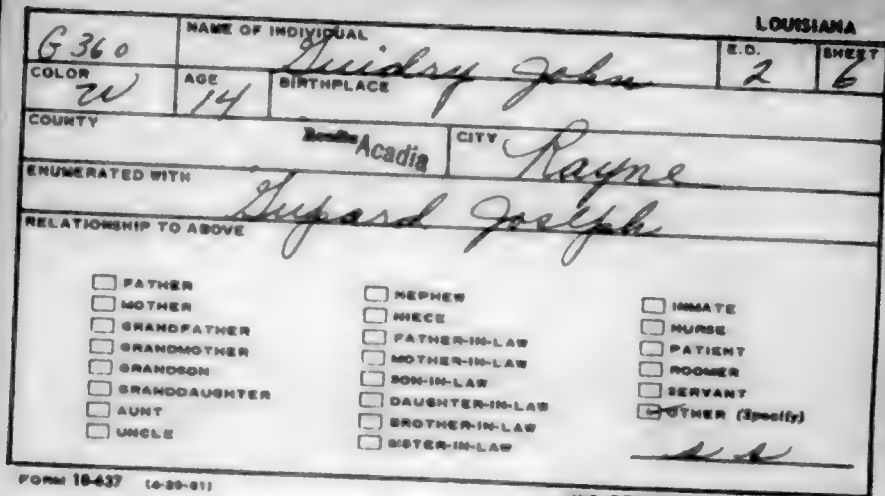 LOUISIANA
G 360 NAME OF INDIVIDUAL Guidry John E.D. 2 SHEET 6
COLOR W AGE 14 BIRTHPLACE
COUNTY Acadia CITY Rayne
ENUMERATED WITH Joseph
RELATIONSHIP TO ABOVE
FATHER
MOTHER
GRANDFATHER
GRANDMOTHER
GRANDSON
GRANDDAUGHTER
AUNT
UNCLE
NEPHEW
NIECE
FATHER-IN-LAW
MOTHER-IN-LAW
SON-IN-LAW
DAUGHTER-IN-LAW
BROTHER-IN-LAW
SISTER-IN-LAW
INMATE
NURSE
PATIENT
ROOMER
SERVANT
OTHER (Specify)
s s
FORM 10-637